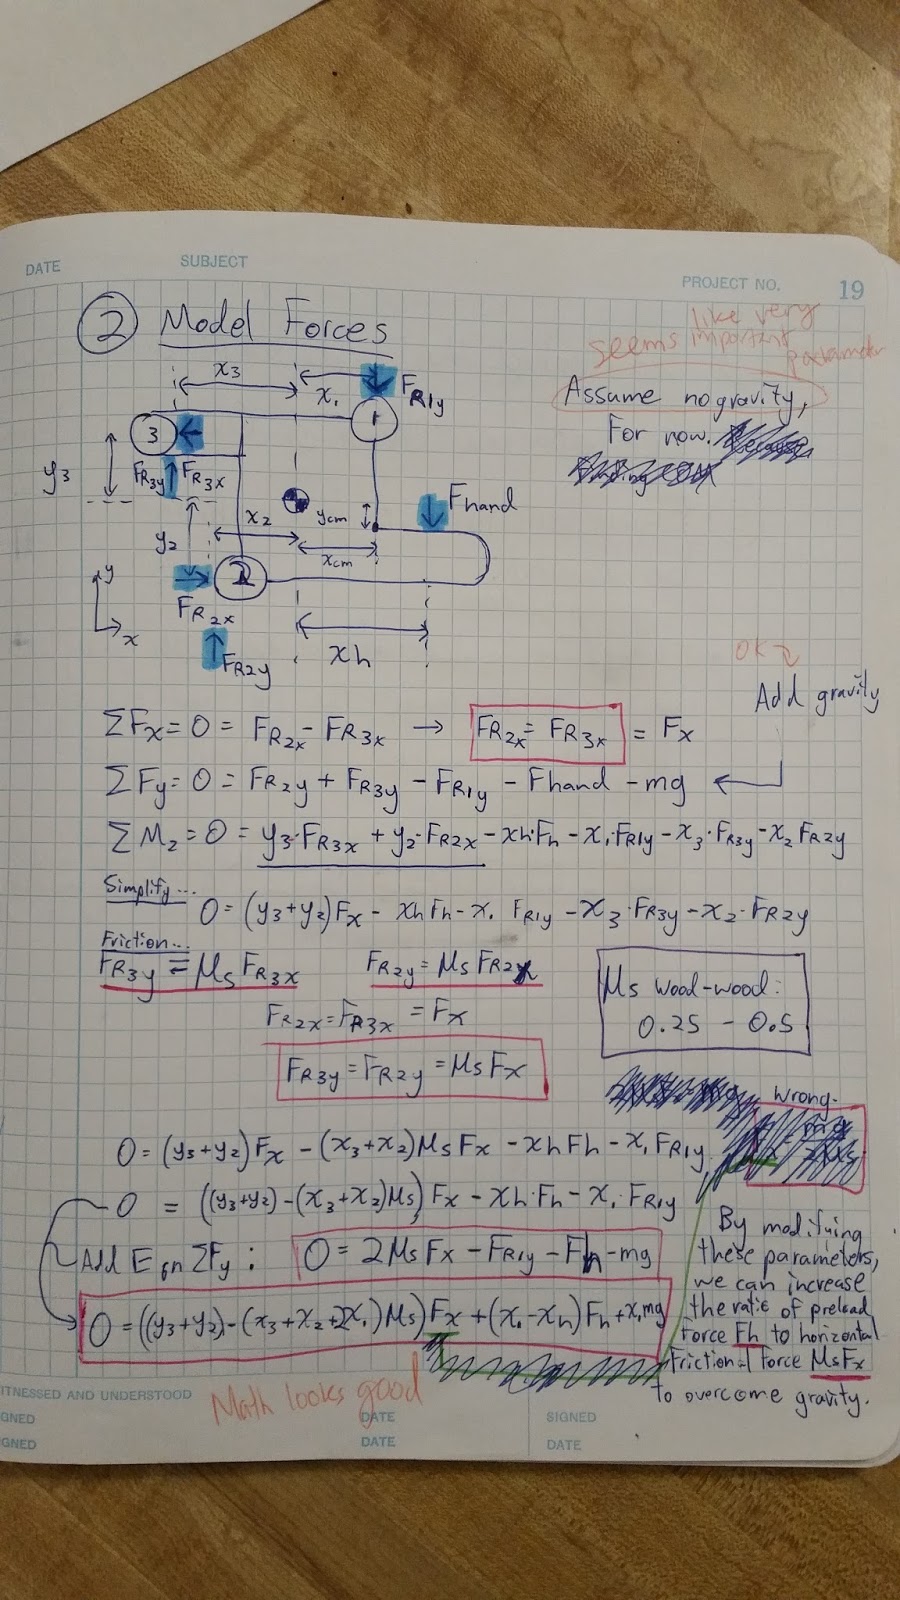 DATE SUBJECT PROJECT NO. 19
② Model Forces
like very
seems important
parameter
Assume no gravity,
For now.
x₃
x₁
F_R1y
1
3
y₃
F_R3y F_R3x
x₂
y_cm
Fhand
y₂
x_cm
2
F_R2x
y
x
F_R2y
xh
OK
Add gravity
ΣFx = 0 = F_R2x - F_R3x → F_R2x = F_R3x = Fx
ΣFy = 0 = F_R2y + F_R3y - F_R1y - Fhand - mg
ΣM_z = 0 = y₃·F_R3x + y₂·F_R2x - xh·Fh - x₁·F_R1y - x₃·F_R3y - x₂ F_R2y
Simplify...
0 = (y₃+y₂)Fx - xhFh - x. F_R1y - x₃·F_R3y - x₂·F_R2y
Friction...
F_R3y = μs F_R3x F_R2y = μs F_R2x
μs wood-wood:
0.25 - 0.5
F_R2x = F_R3x = Fx
F_R3y = F_R2y = μs Fx
wrong-
0 = (y₃+y₂)Fx - (x₃+x₂)μsFx - xhFh - x₁F_R1y
0 = ((y₃+y₂) - (x₃+x₂)μs)Fx - xh·Fh - x₁·F_R1y
Add Eqn ΣFy: 0 = 2μsFx - F_R1y - Fh - mg
0 = ((y₃+y₂) - (x₃+x₂+2x₁)μs)Fx + (x₁-xh)Fh + x₁mg
By modifying
these parameters,
we can increase
the ratio of preload
force Fh to horizontal
frictional force μsFx
to overcome gravity.
Math looks good
ITNESSED AND UNDERSTOOD
GNED DATE SIGNED
GNED DATE DATE